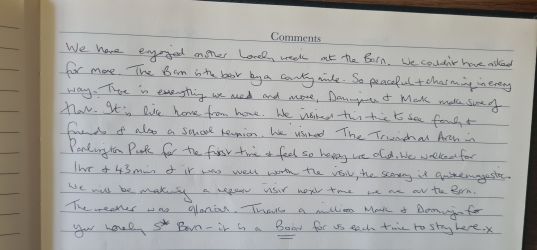 Comments
We have enjoyed another lovely week at the Barn. We couldn't have asked
for more. The Barn is the best by a country mile. So peaceful + charming in every
way. There is everything we need and more, + Mark make sure of
that. It's like home from home. We visited this time to see family +
friends + also a school reunion. We visited The Triumphal Arch in
Parlington Park for the first time + feel so happy we did. We walked for
1hr + 43 min + it was well worth the visit, the scenery is quite majestic.
We will be making a repeat visit next time we are at the Barn.
The weather was glorious. Thanks a million Mark + for
your lovely 5* Barn - it is a Boon for us each time to stay here. x